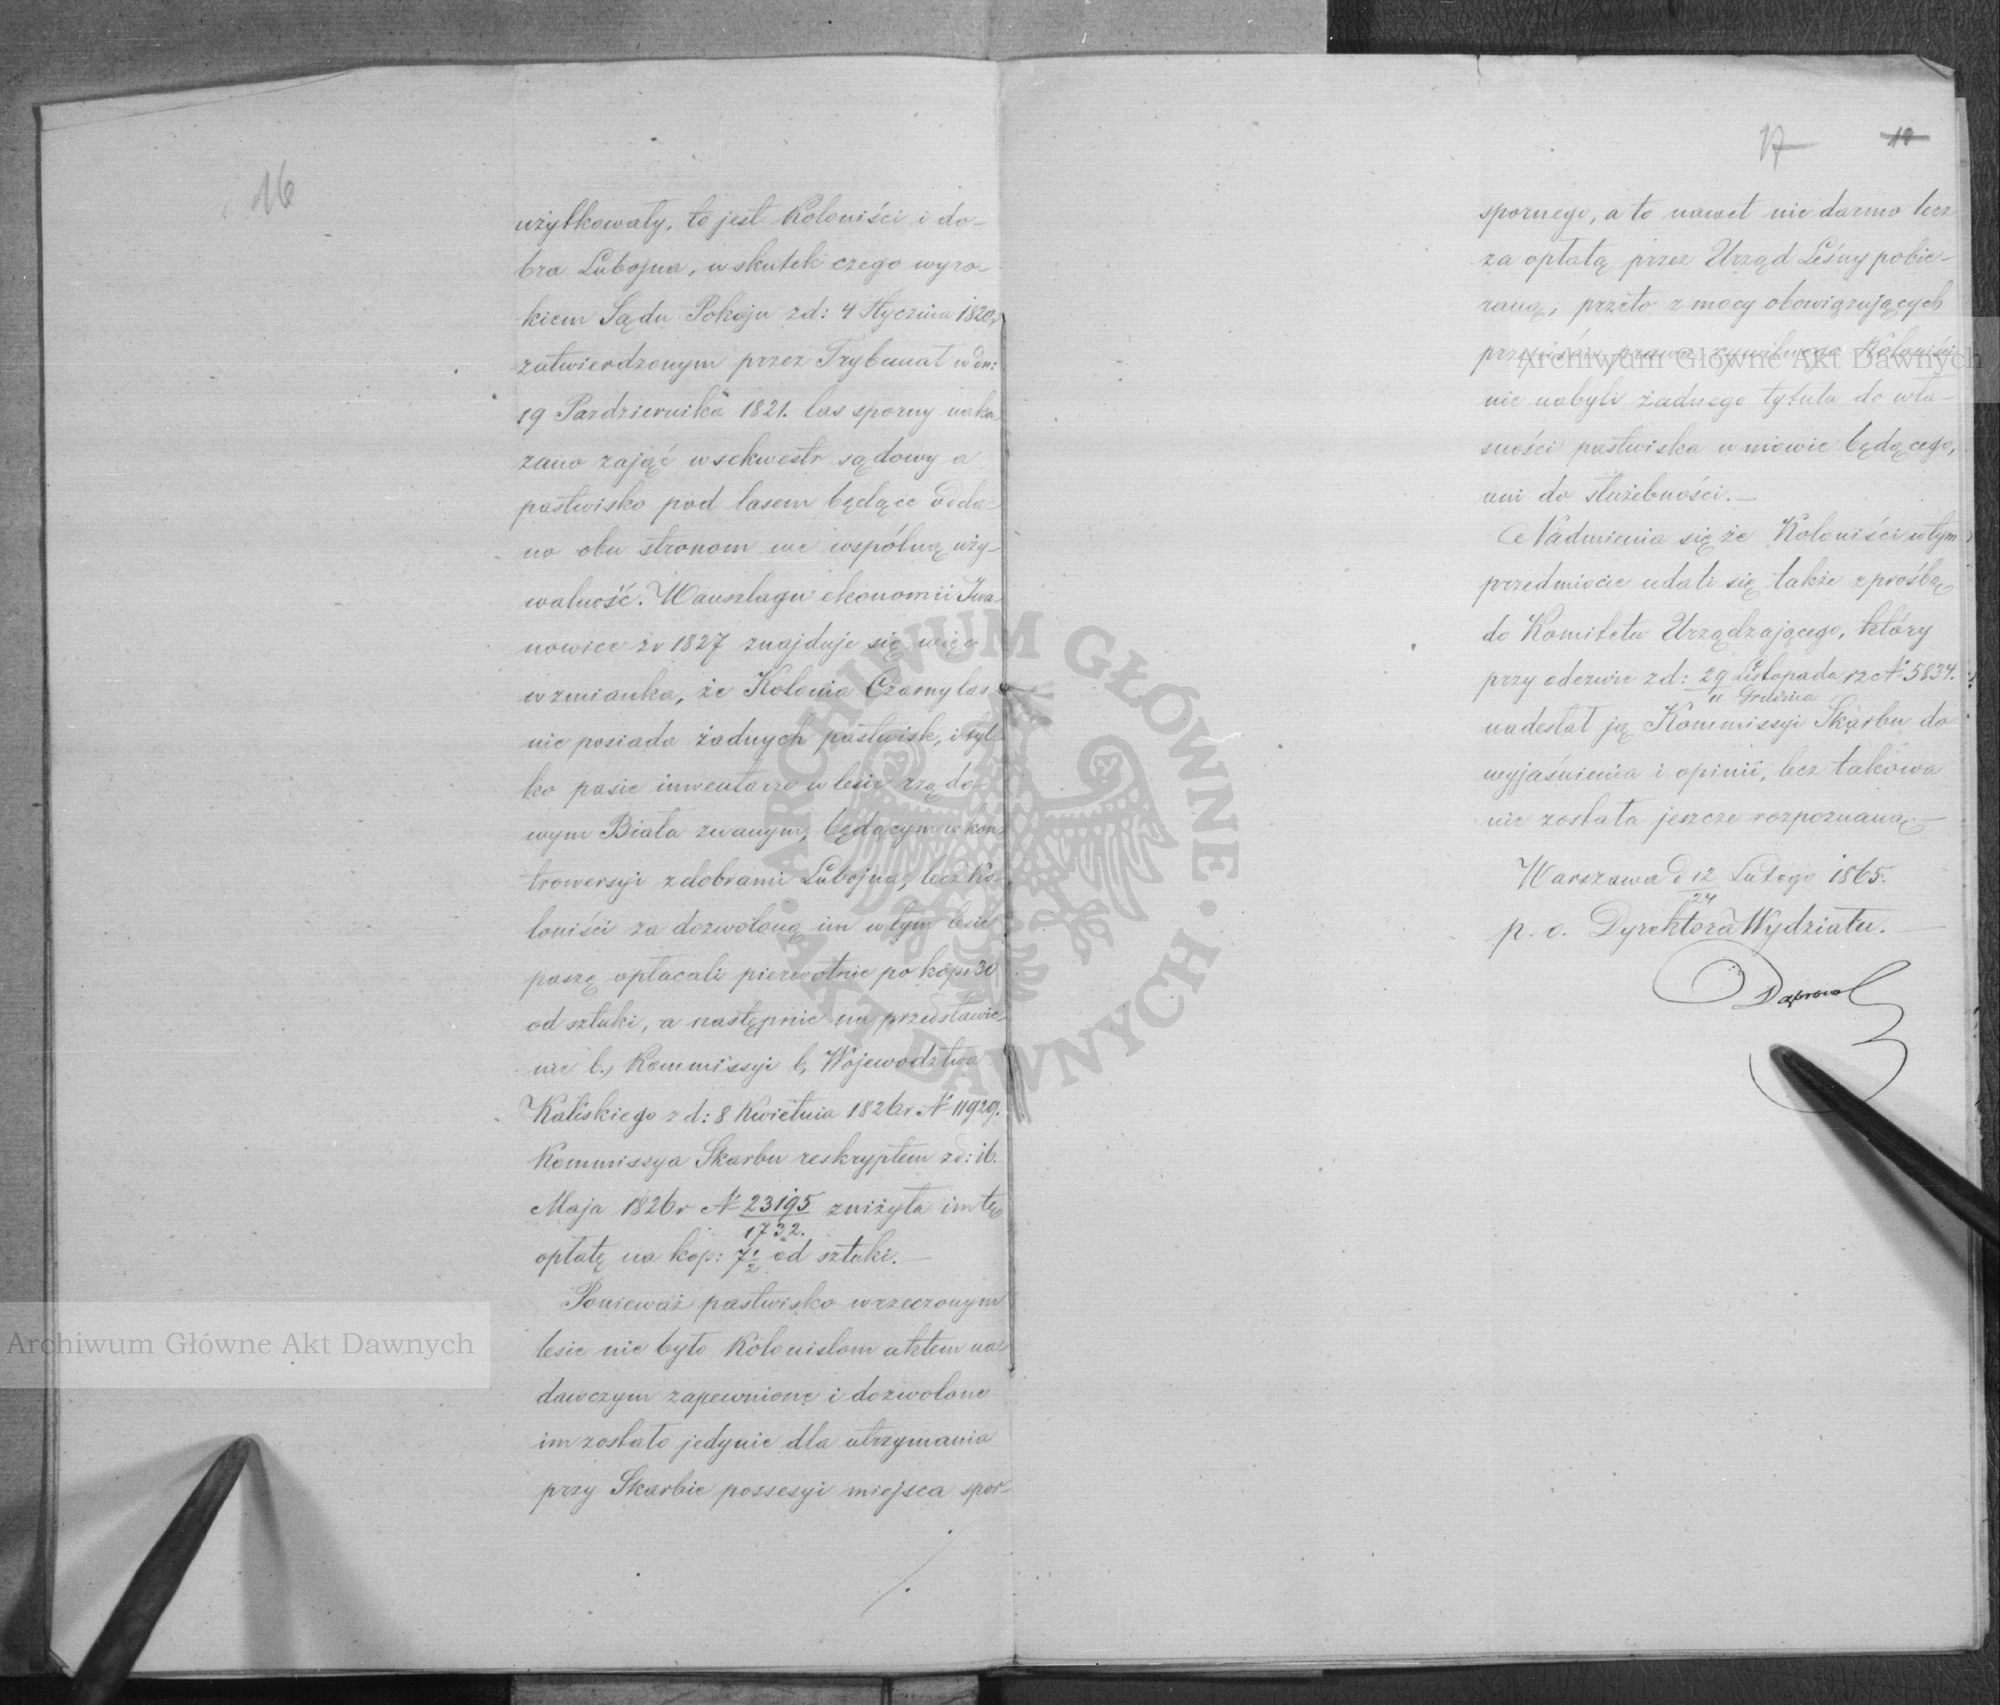 16
użytkowały, to jest Koloniści i do-
bra Lubojna, w skutek czego wyro-
kiem Sądu Pokoju z d: 4 Stycznia 1820 r
zatwierdzonym przez Trybunał w dn:
19 Pazdziernika 1821. las sporny naka
zano zająć w sekwestr sądowy a
pastwisko pod lasem będące odda-
no obu stronom we wspólną uży-
walność. W anszlagu ekonomii Iwa-
nowice z r 1827 znajduje się
wzmianka, że Kolonia Czarny las
nie posiada żadnych pastwisk, i tyl-
ko pasie inwentarze w lesie rządo-
wym Biała zwanym, będącym w kon-
trowersyi z dobrami Lubojna, lecz Ko-
loniści za dozwoloną im w tym lesie
paszę opłacali pierwotnie po kop: 30
od sztuki, a następnie na przedstawie-
nie b. Kommissyi b. Województwa
Kaliskiego z d: 8 Kwietnia 1826 r N 11929.
Kommissya Skarbu reskryptem z d: 16.
Maja 1826 r N 23195/1732. zniżyła im tę
opłatę na kop: 7 1/2 od sztuki.—
Ponieważ pastwisko w rzeczonym
lesie nie było Kolonistom aktem na-
dawczym zapewnione i dozwolone
im zostało jedynie dla utrzymania
przy Skarbie possesyi miejsca spor-
17 18
spornego, a to nawet nie darmo lecz
za opłatą przez Urząd Leśny pobie-
raną, przeto z mocy obowiązujących
przepisów prawa cywilnego Koloniści
nie nabyli żadnego tytułu do wła-
sności pastwiska w mowie będącego,
ani do służebności.—
Nadmienia się że Koloniści w tym
przedmiocie udali się także z prośbą
do Komitetu Urządzającego, który
przy odezwie z d: 29 Listopada/11 Grudnia r z N 5834.
nadesłał ją Kommissyi Skarbu do
wyjaśnienia i opinii, lecz takowa
nie została jeszcze rozpoznaną.—
Warszawa d 12/24 Lutego 1865.
p. o. Dyrektora Wydziału.
Archiwum Główne Akt Dawnych
Archiwum Główne Akt Dawnych
ARCHIWUM GŁÓWNE · AKT DAWNYCH ·